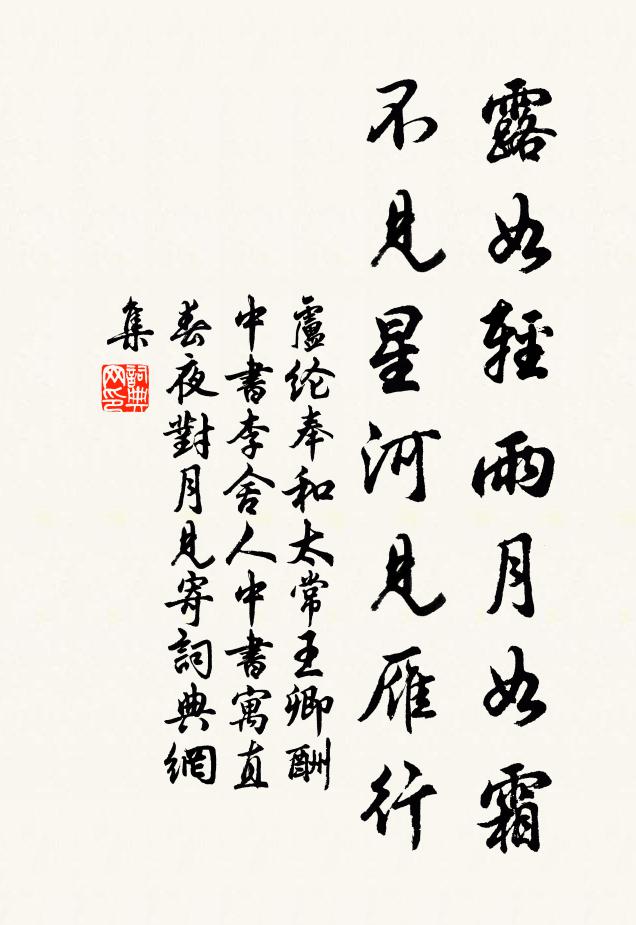 露如輕雨月如霜
不見星河見雁行
盧纶奉和太常王卿酬
中書李舍人中書寓直
春夜對月見寄詞典網
集
詞典
网印